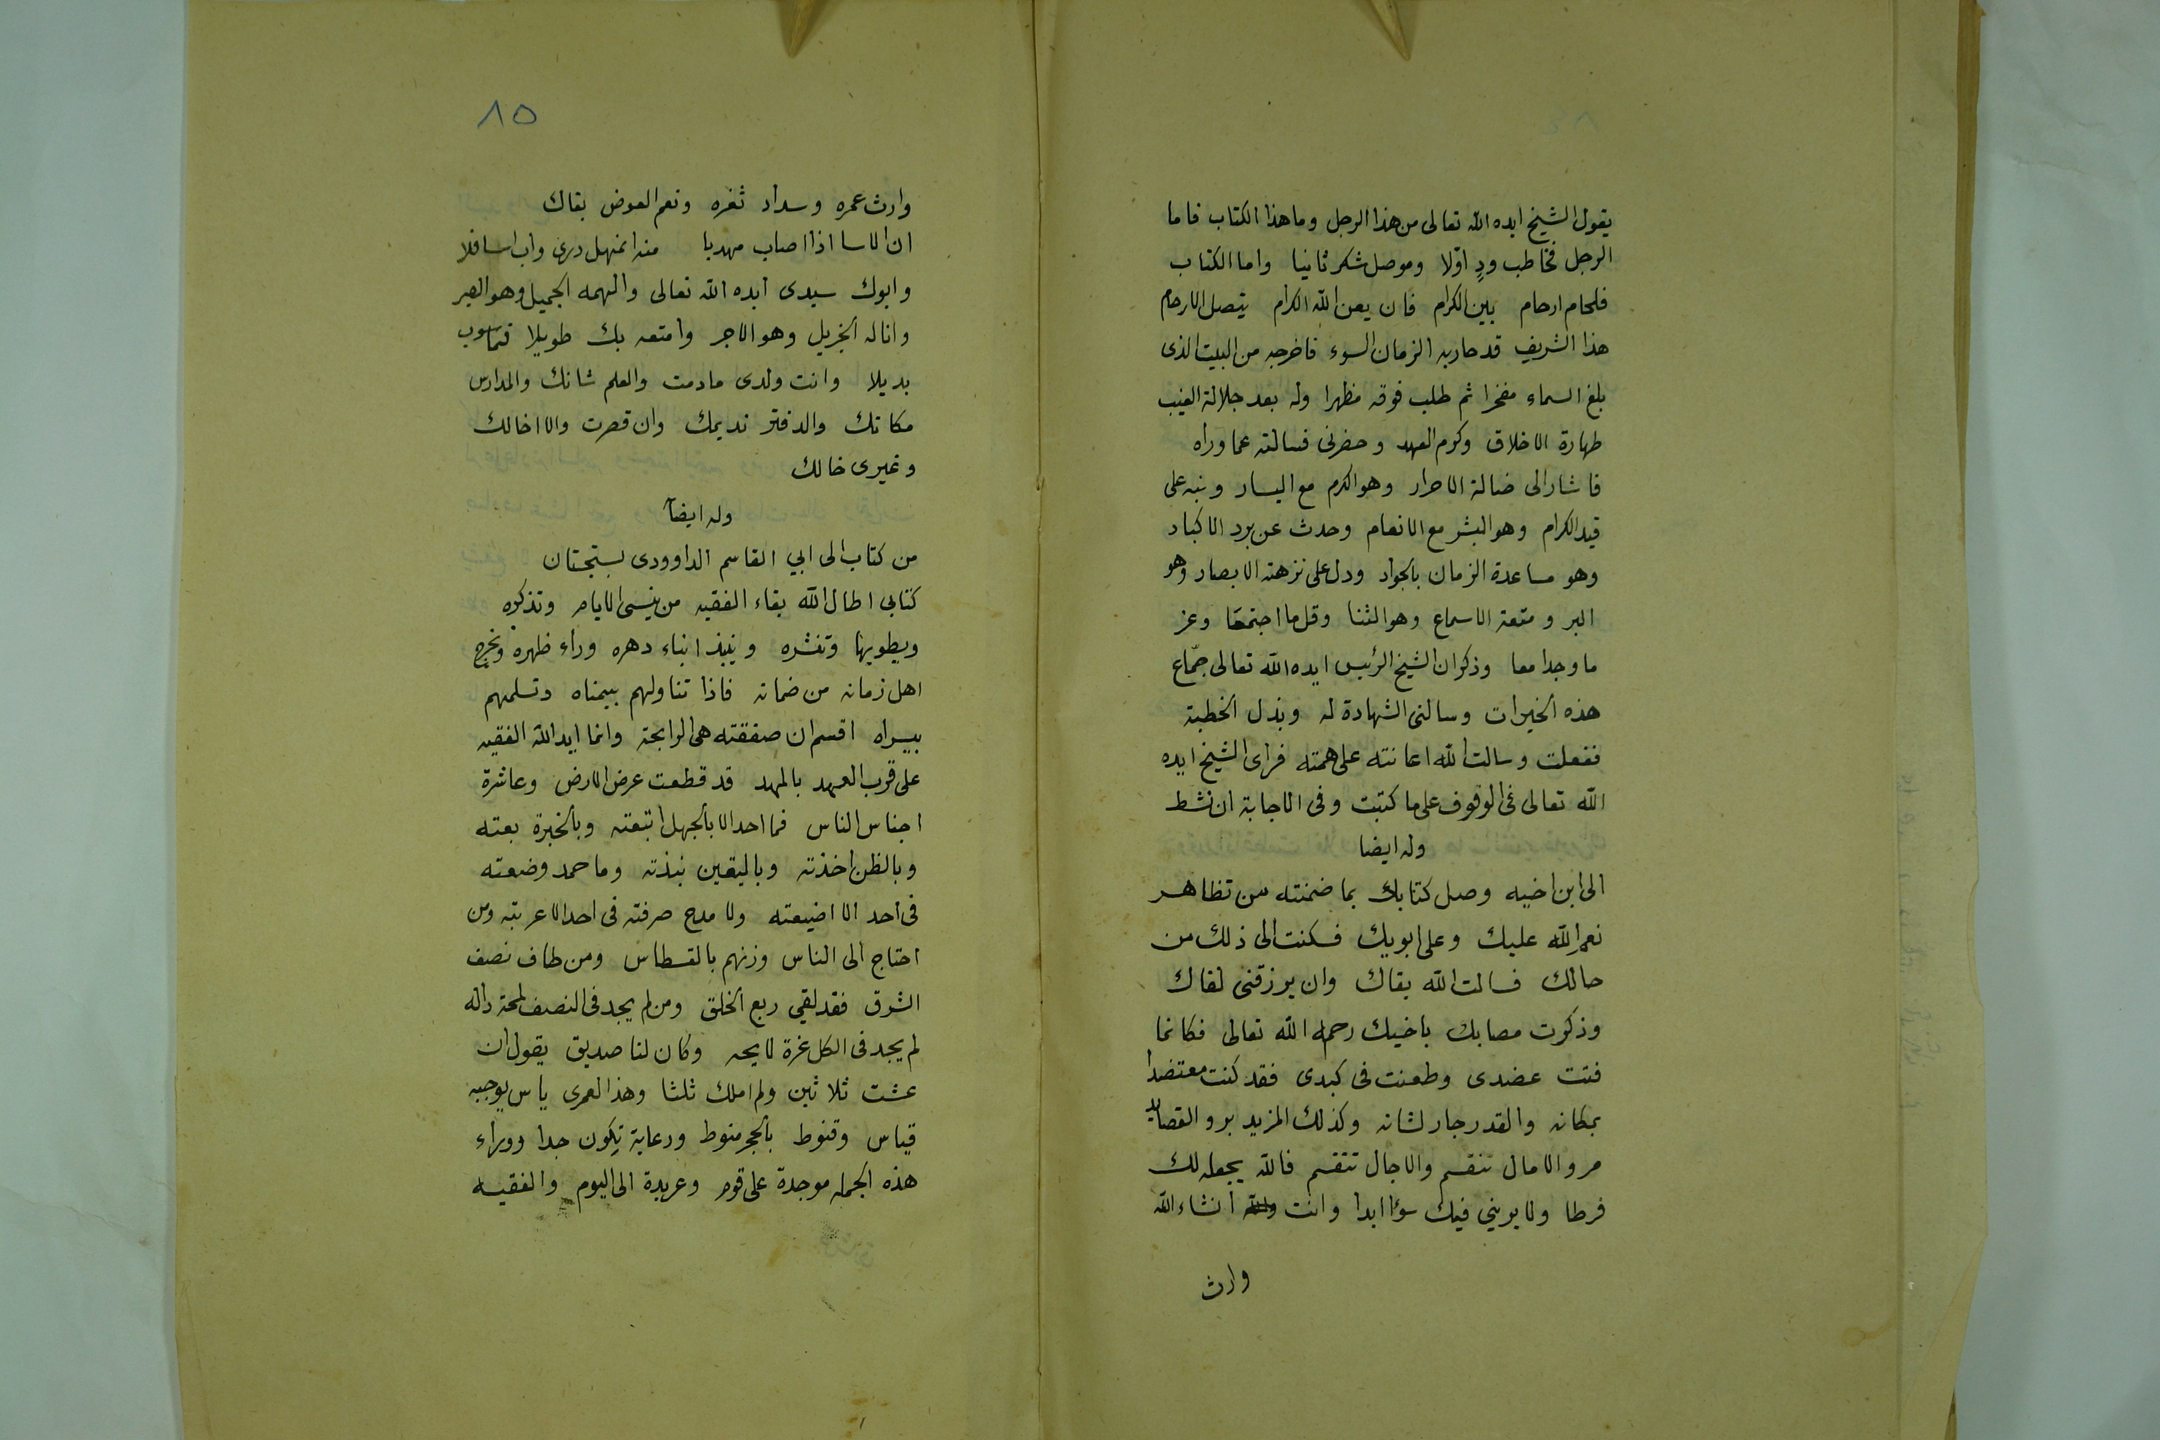 يقول الشيخ ايده الله تعالى من هذا الرجل وما هذا الكتاب فاما
الرجل فخاطب ودٍ اولا وموصل شكر ثانيا واما الكتاب
فلحام ارحام بين الكرام فان يعن الله الكرام يتصل الارحام
هذا الشريف قد حاربه الزمان السوء فاخرجه من البيت الذى
بلغ السماء مفخرا ثم طلب فوقه مظهرا وله بعد جلالة النسب
طهارة الاخلاق وكرم العهد وحضرنى فسالته عما وراه
فاشار الى ضالة الاحرار وهو الكرم مع اليسار ونبه على
قيد الكرام وهو البشر مع الانعام وحدث عن برد الاكباد
وهو مساعدة الزمان بالجواد ودل على نزهته الابصار وهو
البر ومتعة الاسماع وهو الثنا وقل ما اجتمعا وعز
ما وجدا معا وذكر ان الشيخ الرئيس ايده الله تعالى جمّاع
هذه الخيرات وسالنى الشهادة له وبذل الخطبة
ففعلت وسالت الله اعانته على همته فراى الشيخ ايده
الله تعالى فى الوقوف على ما كتبت وفى الاجابة ان نشط
وله ايضا
الى ابن اخيه وصل كتابك بما ضمنته من تظاهر
نعم الله عليك وعلى ابويك فسكنت الى ذلك من
حالك فسالت الله بقاك وان يرزقنى لقاك
وذكرت مصابك باخيك رحمه الله تعالى فكانما
فتت عضدى وطعنت فى كبدى فقد كنت معتضدا
بمكانه والقدر جار لشانه وكذلك المر يدبر والقضا
مر والامال تنقسم والاجال تتقسم فالله يجعله لك
فرطا ولا يرينى فيك سؤا ابدا وانت انشاء الله
وارث
٨٥
وارث عمره وسداد ثغره ونعم العوض بقاك
ان الاسا اذا اصاب مهدبا منه انمهل ذرى واب اسافلا
وابوك سيدى ايده الله تعالى والهمه الجميل وهو الصبر
واناله الجزيل وهو الاجر وامتعه بك طويلا فما
بديلا وانت ولدى ما دمت والعلم شانك والمدارس
مكانك والدفتر نديمك وان قصرت ولا اخالك
وغيرى خالك
وله ايضاً
من كتاب الى ابي القاسم الداوودى بسجستان
كتابى اطال الله بقاء الفقيه من ينسى الايام وتذكره
ويطويها وتنشره وينبذ ابناء دهره وراء ظهره ونخرج
اهل زمانه من ضمانه فاذا تناولهم بيمناه وتسلمهم
بيسراه اقسم ان صفقته هى الرابحة وانا ايد الله الفقيه
على قرب العهد بالمهد قد قطعت عرض الارض وعاشرة
اجناس الناس فما احد الا بالجهل اتبعته وبالخبرة بعته
وبالظن اخذته وباليقين نبذته وما حمد وضعته
فى احد الا اضيعته ولا مدح صرفته فى احد الا عربته ومن
احتاج الى الناس وزنهم بالقسطاس ومن طاف نصف
الشرق فقد لقي ربع الخلق ومن لم يجد فى النصف لمحة داله
لم يجد فى الكل غرة لايحه وكان لنا صديق يقول ان
عشت ثلاثين ولم املك ثلثا وهذا لعمرى ياس يوجبه
قياس وقنوط بالحجر منوط ودعابة تكون جدا ووراء
هذه الجمله موجدة على قوم وعربدة الى اليوم والفقيه